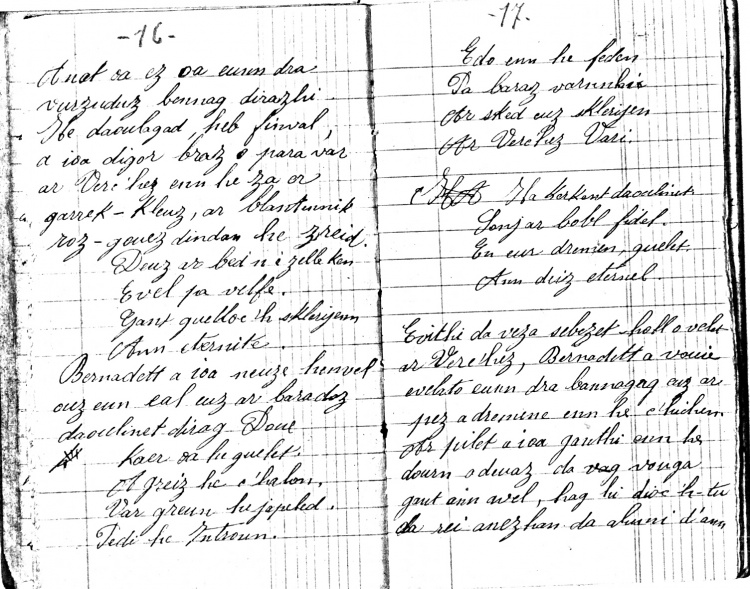 -16-
Anat oa ez oa eunn dra
vurzuduz bennag dirazhi.
He daoulagad, heb finval,
a ioa digor braz o para var
ar Verc'hez enn he za or
garrek-kleuz, ar blantennik
roz-gouez dindan he zreid.
Deuz ar bed ni zelle ken
Evel pa velfe.
Gant guelloc'h sklerijenn
Ann eternite.
Bernadett a ioa neuze henvel
ouz eun eal euz ar baradoz
daoulinet dirag Doue
Kaer oa he guelet.
A greiz he c'halon,
Var greun he japeled.
Pedi he Introun.
-17-
Edo enn he feden
Pa baraz varnhi
Ar sked euz sklerijen
Ar Verc'hez Vari.
Ha kerkent daoulinet
Sonj ar bobl fidel.
En eur dremen, guelet.
Ann deiz eternel.
Evithi da veza sebezet holl o velet
ar Verc'hez, Bernadett a vouie
evelato eunn dra bannagag euz ar
pez a dremene enn he c'hichen
Ar pilet a ioa ganthi enn he
dourn a deuaz da vag vouga
gant ann avel, hag hi dioc'h-tu
da rei anezhan da alumi d'ann